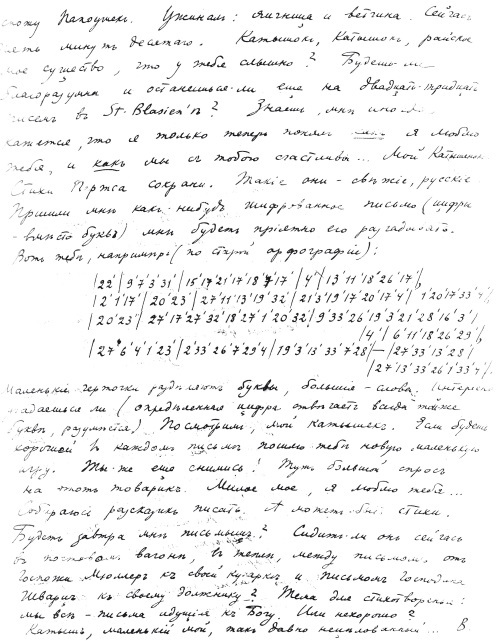 Напоушек. Ужинал: яичница и ветчина. Сейчас
минутъ десятаго. Катышокъ, Катышокъ, райское
мое существо, что у тебя слышно? Будешь ли
благоразумна и останешься-ли еще на двадцать-тридцать
въ St. Blasien'ѣ? Знаешь, мнѣ иногда
кажется, что я только теперь понялъ я люблю
тебя, и какъ мы съ тобою счастливы... Мой Катышокъ
Стихи сохрани. Такіе они - свѣжіе, русскіе
Пришли мнѣ какъ-нибудь шифрованное письмо (цифры
вмѣсто буквъ) мнѣ будетъ пріятно его разгадывать.
Вотъ тебѣ, напримѣръ (по старой орфографіи):
|22'|9'7'3'31'|15'17'21'17'18'7'17'|4'|13'11'18'26'17'|
|2'1'17'|20'23'|27'11'13'19'32'|21'3'19'17'20'17'4'|1'20'17'33'4'|
|20'23'|27'17'27'32'18'27'1'20'32'|9'33'26'19'3'21'28'16'3'|
|4'|6'11'18'26'29'|
|27'6'4'1'23'|2'33'26'7'29'4|19'3'13'33'7'28'|—|27'33'13'28'|
|27'13'33'26'1'33'4'|
Маленькія черточки раздѣляютъ буквы, большія - слова. Интересно
угадаешься ли (опредѣленная цифра отвѣчаетъ всегда той же
буквѣ, разумѣется) Посмотримъ, мой катышекъ. Если будешь
хорошей въ каждомъ письмѣ пошлю тебѣ новую маленькую
игру. Ты-же еще снимись! Тутъ большой спросъ
на этотъ товарикъ. Милое мое, я люблю тебя...
Собираюсь разсказикъ писать. А можетъ быть стихи.
Будетъ завтра мнѣ письмышъ? Сидитъ ли онъ сейчасъ
въ почтовомъ вагонѣ, въ теплѣ, между письмомъ отъ
Госпожи Мюллеръ къ своей кухаркѣ и письмомъ Господина
Шварцъ къ своему должнику? Тема для стихотворенія:
мы всѣ - письма идущія къ Богу. Или нехорошо?
Катышъ, маленькій мой, такъ давно нецѣлованный... В